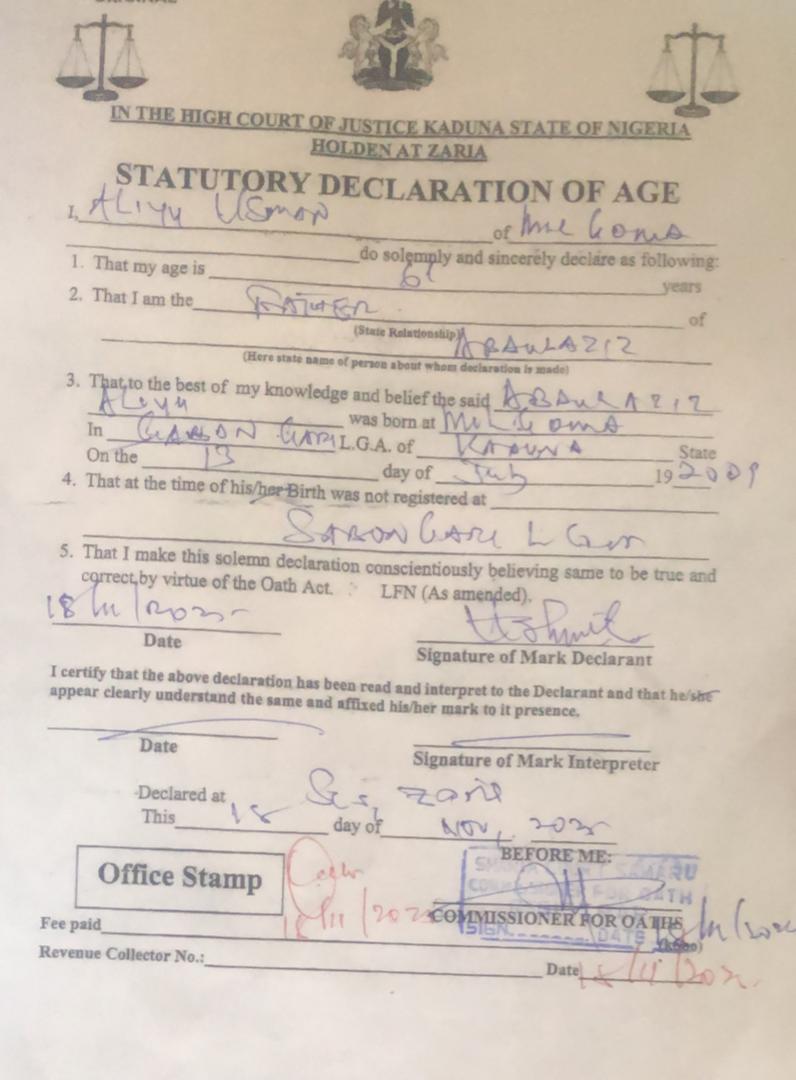 IN THE HIGH COURT OF JUSTICE KADUNA STATE OF NIGERIA
HOLDEN AT ZARIA
STATUTORY DECLARATION OF AGE
I, ALIYU USMAN of
do solemnly and sincerely declare as following:
1. That my age is years
2. That I am the FATHER of
(State Relationship) ABDULAZIZ
(Here state name of person about whom declaration is made)
3. That to the best of my knowledge and belief the said ABDULAZIZ
ALIYU was born at
In SABON GARI L.G.A. of KADUNA State
On the 13 day of July 19 2009
4. That at the time of his/her Birth was not registered at
SABON GARI L
5. That I make this solemn declaration conscientiously believing same to be true and
correct by virtue of the Oath Act. LFN (As amended).
18/11/2025
Date
Signature of Mark Declarant
I certify that the above declaration has been read and interpret to the Declarant and that he/she
appear clearly understand the same and affixed his/her mark to it presence.
Date
Signature of Mark Interpreter
Declared at Zaria
This 18 day of NOV, 2025
BEFORE ME:
Office Stamp
SAMARU
FOR OATH
18/11/2025
COMMISSIONER FOR OATHS 18/11/2025
SIGN DATE
Fee paid
Revenue Collector No.: Date 18/11/2025